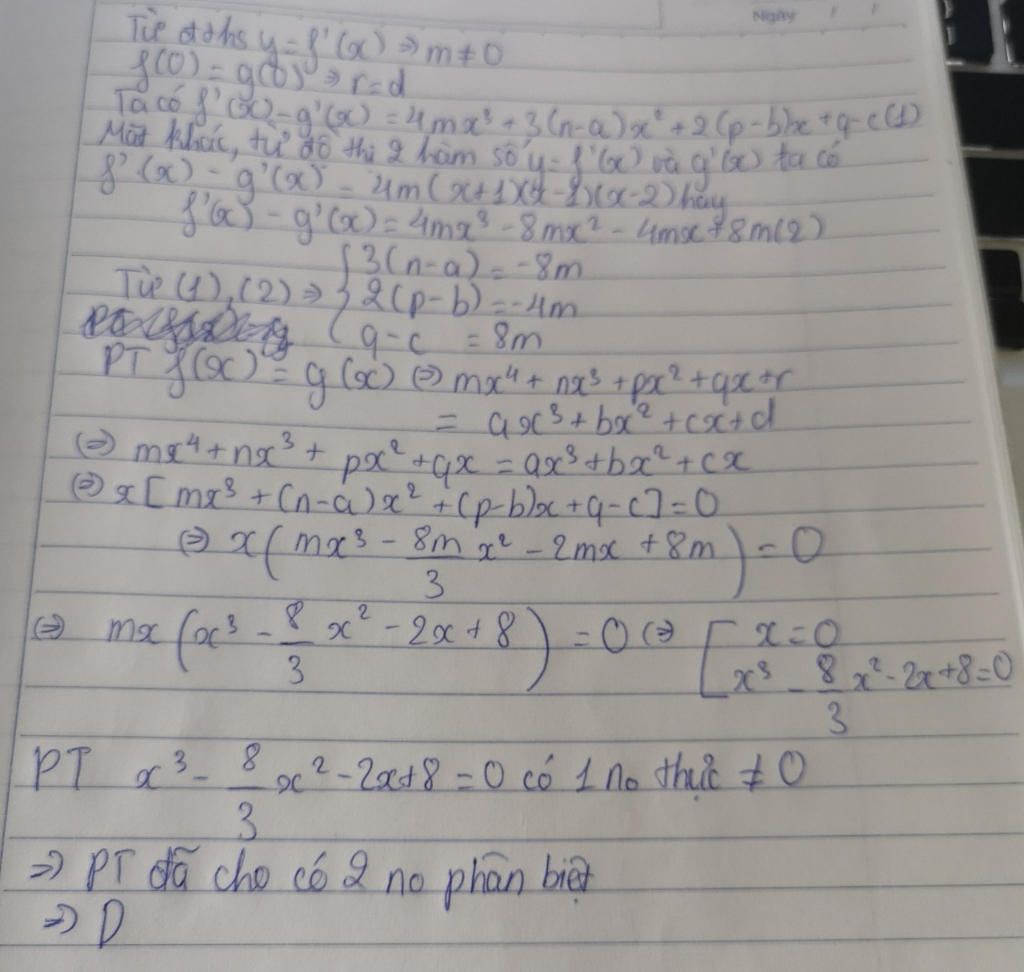 Ngày / /
Từ đths y = f'(x) ⇒ m ≠ 0
f(0) = g(0) ⇒ r = d
Ta có f'(x) - g'(x) = 4mx³ + 3(n-a)x² + 2(p-b)x + q-c (1)
Mặt khác, từ đồ thị 2 hàm số y = f'(x) và g'(x) ta có
f'(x) - g'(x) = 4m(x+1)(x-1)(x-2) hay
f'(x) - g'(x) = 4mx³ - 8mx² - 4mx + 8m (2)
{ 3(n-a) = -8m
Từ (1), (2) ⇒ { 2(p-b) = -4m
{ q-c = 8m
PT f(x) = g(x) ⇔ mx⁴ + nx³ + px² + qx + r
= ax³ + bx² + cx + d
⇔ mx⁴ + nx³ + px² + qx = ax³ + bx² + cx
⇔ x[mx³ + (n-a)x² + (p-b)x + q-c] = 0
⇔ x(mx³ - 8m/3 x² - 2mx + 8m) = 0
⇔ mx(x³ - 8/3 x² - 2x + 8) = 0 ⇔ [ x = 0
x³ - 8/3 x² - 2x + 8 = 0
PT x³ - 8/3 x² - 2x + 8 = 0 có 1 no thực ≠ 0
⇒ PT đã cho có 2 no phân biệt
⇒ D